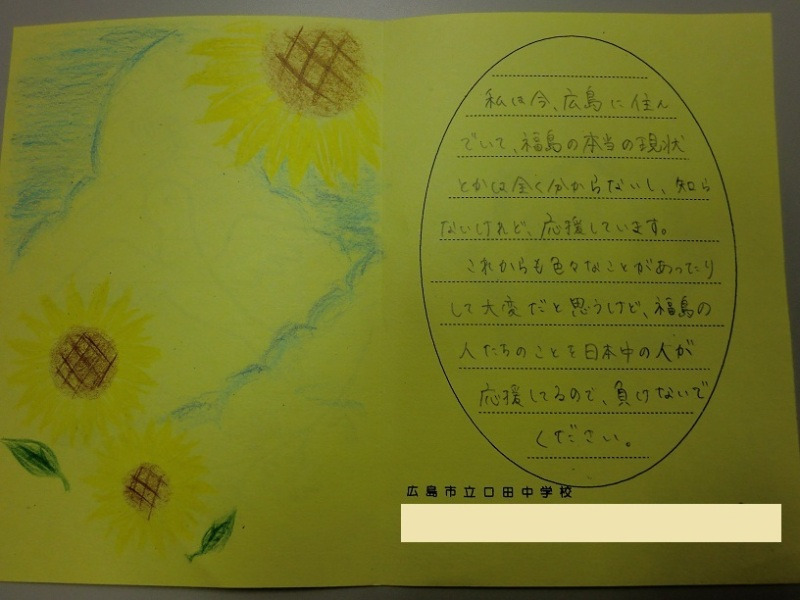 私は今、広島に住ん
でいて、福島の本当の現状
とかは全く分からないし、知ら
ないけれど、応援しています。
これからも色々なことがあったり
して大変だと思うけど、福島の
人たちのことを日本中の人が
応援してるので、負けないで
ください。
広島市立口田中学校